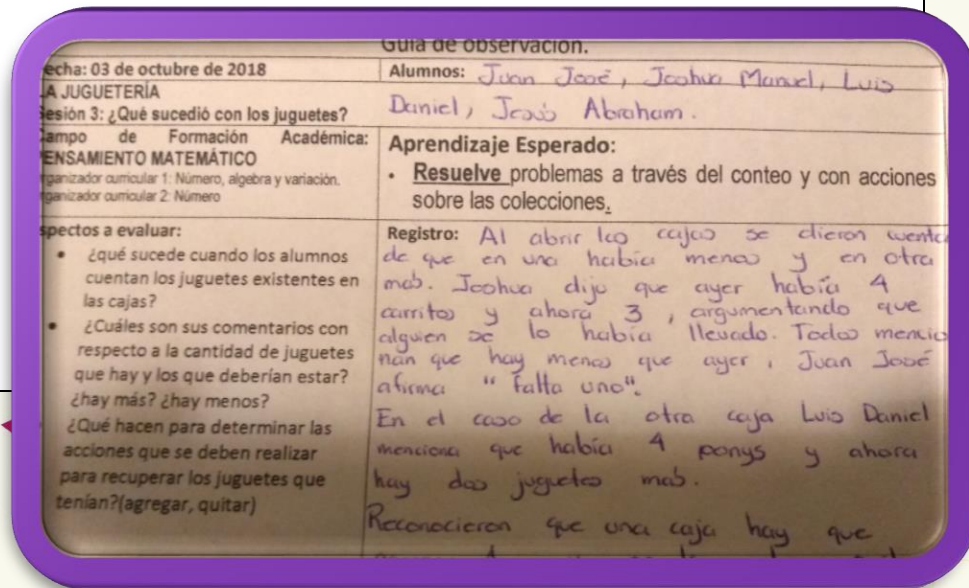 Guía de observación.
echa: 03 de octubre de 2018
LA JUGUETERÍA
Sesión 3: ¿Qué sucedió con los juguetes?
Alumnos: Juan José, Joshua Manuel, Luis
Daniel, Jesús Abraham.
Campo de Formación Académica:
PENSAMIENTO MATEMÁTICO
rganizador curricular 1: Número, algebra y variación.
rganizador curricular 2: Número
Aprendizaje Esperado:
• Resuelve problemas a través del conteo y con acciones
sobre las colecciones.
spectos a evaluar:
• ¿qué sucede cuando los alumnos
cuentan los juguetes existentes en
las cajas?
• ¿Cuáles son sus comentarios con
respecto a la cantidad de juguetes
que hay y los que deberían estar?
¿hay más? ¿hay menos?
¿Qué hacen para determinar las
acciones que se deben realizar
para recuperar los juguetes que
tenían?(agregar, quitar)
Registro: Al abrir las cajas se dieron cuenta
de que en una había menos y en otra
mas. Joshua dijo que ayer había 4
carritos y ahora 3, argumentando que
alguien se lo había llevado. Todos mencio
nan que hay menos que ayer, Juan José
afirma "falta uno".
En el caso de la otra caja Luis Daniel
menciona que había 4 ponys y ahora
hay dos juguetes mas.
Reconocieron que una caja hay que